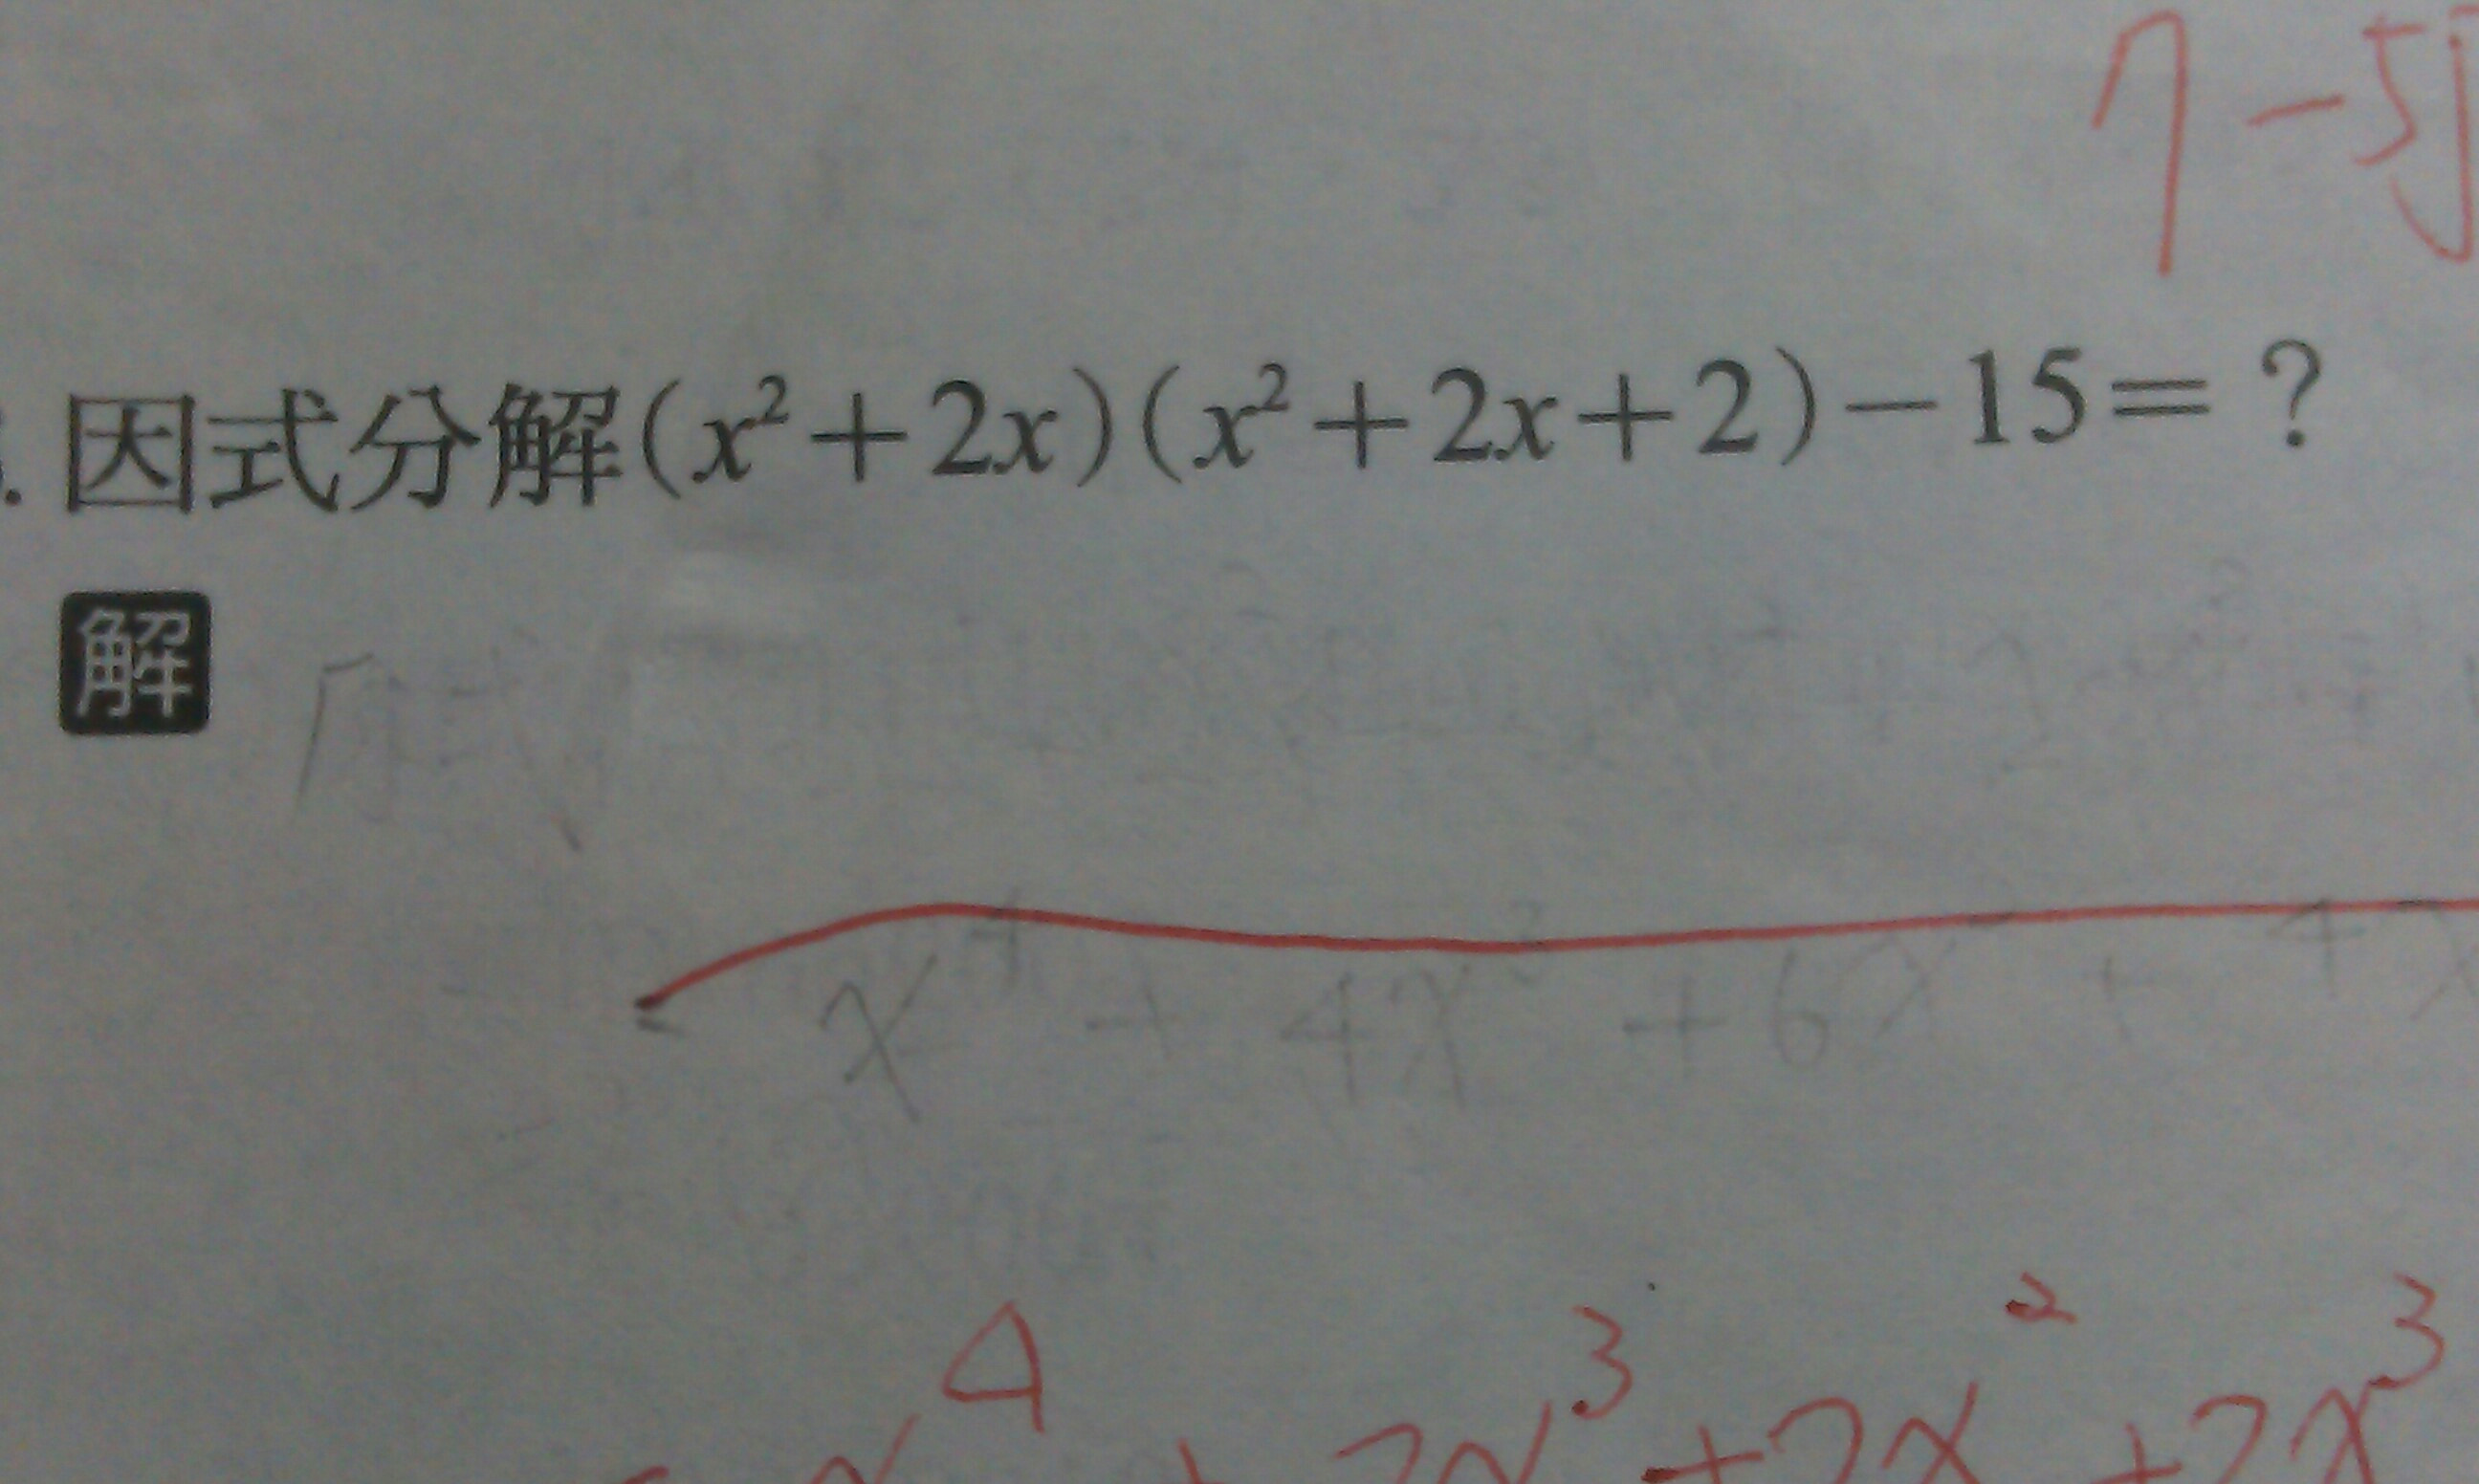 7-5
因式分解(x²+2x)(x²+2x+2)-15=?
解
原式
x⁴ + 4x³ + 6x² + 4x
x⁴ + 2x³ + 2x² + 2x³